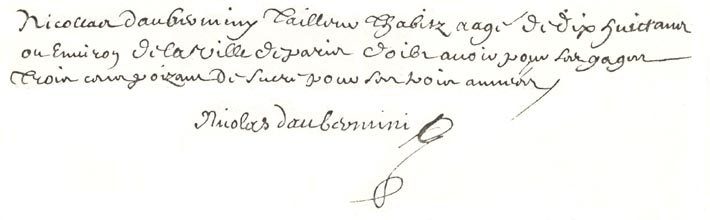 Nicollas dauberminy tailleur dhabitz aagé de dix huict ans
ou Environ de la ville de paris doibt avoir pour ses gages
trois cens poizant De sucre pour ses trois annees
Nicolas daubermini